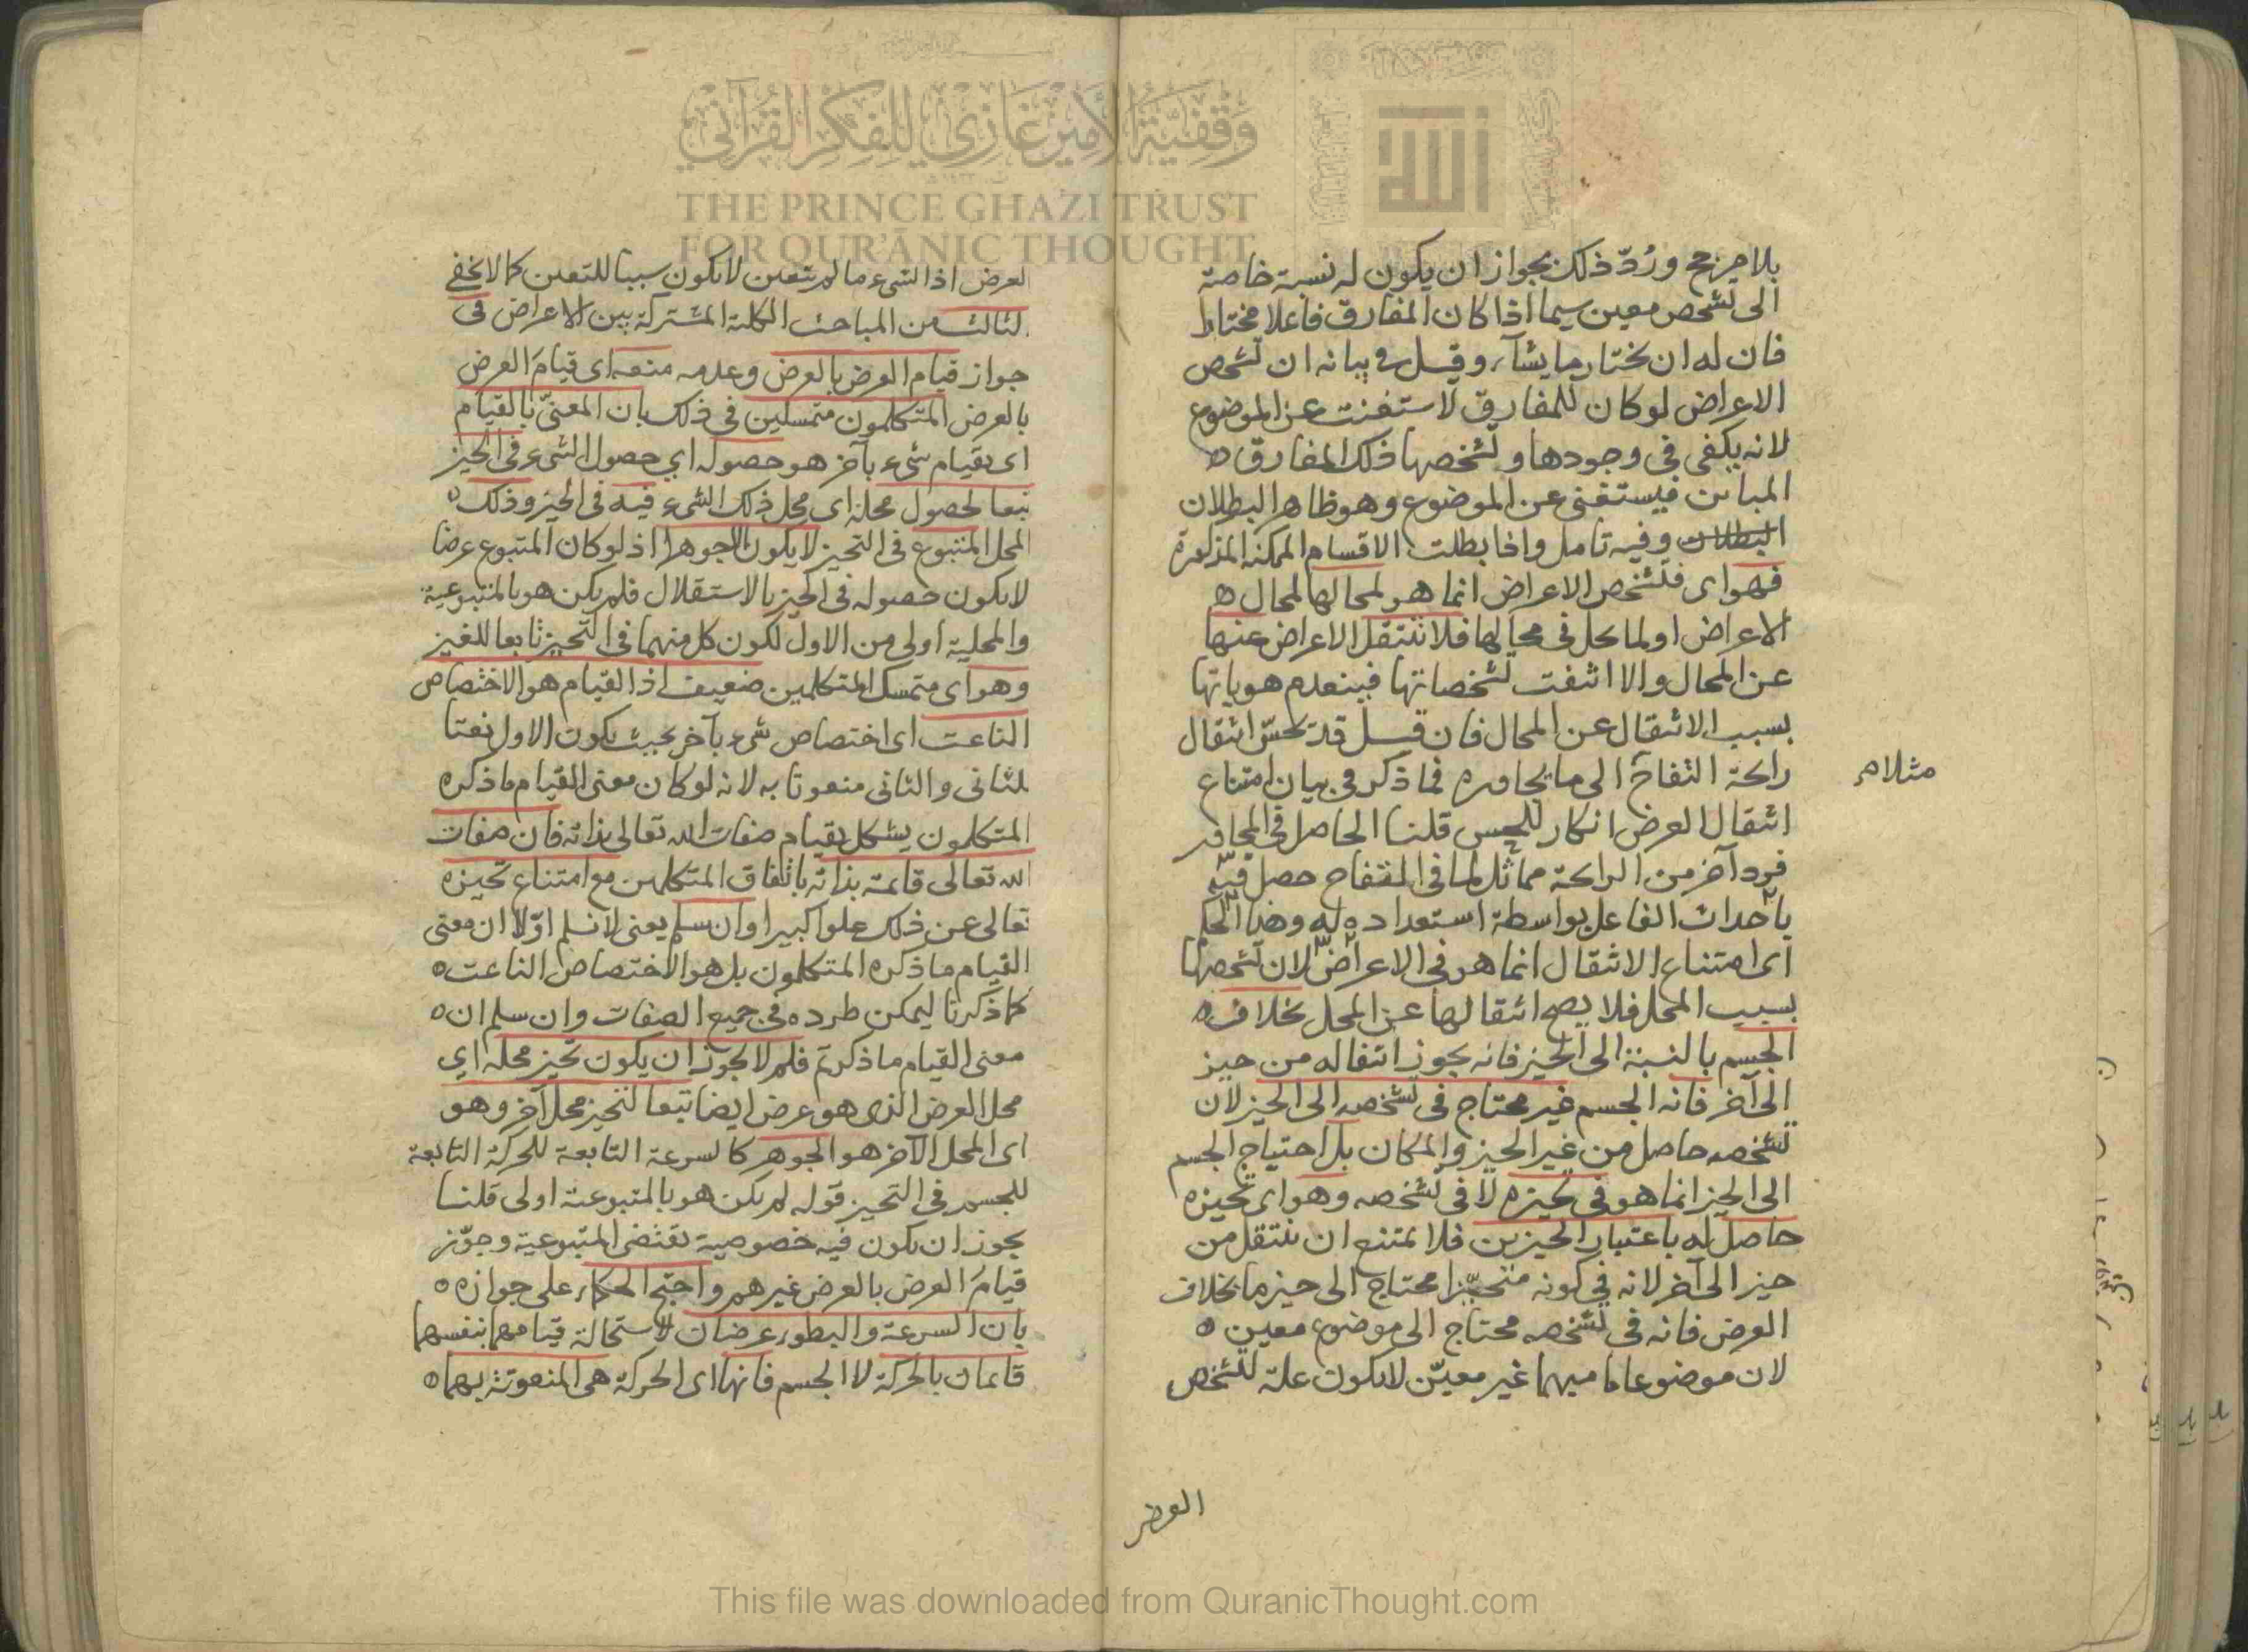 وقفية الأمير غازي للفكر القرآني
THE PRINCE GHAZI TRUST
FOR QUR'ĀNIC THOUGHT
الله
بلا مرجح ورُدّ ذلك بجواز ان يكون له نسبة خاصة
الى تشخص معين سيما اذا كان المفارق فاعلا مختارا
فان له ان يختار ما يشآء وقيل فى بيانه ان تشخص
الاعراض لو كان للمفارق لاستغنت عن الموضوع
لانه يكفى فى وجودها وتشخصها ذلك المفارق
المباين فيستغنى عن الموضوع وهو ظاهر البطلان
البطلان وفيه تامل واذا بطلت الاقسام الممكنة المذكورة
فهو اى فتشخص الاعراض انما هو لمحالها لمحال
الاعراض او لما حل فى محالها فلا تنتقل الاعراض عنها
عن المحال والا انتفت تشخصاتها فينعدم هوياتها
بسبب الانتقال عن المحال فان قيل قد نحسّ انتقال
رائحة التفاح الى ما يجاوره فما ذكر فى بيان امتناع
مثلا م
انتقال العرض انكار للحس قلنا الحاصل فى المجاور
فرد آخر من الرائحة مماثل لما فى التفاح حصل فيه
باحداث الفاعل بواسطة استعداده له وهذا الحكم
اى امتناع الانتقال انما هو فى الاعراض لان تشخصها
بسبب المحل فلا يصح انتقالها عن المحل بخلاف
الجسم بالنسبة الى الحيز فانه يجوز انتقاله من حيز
الى آخر فانه الجسم غير محتاج فى تشخصه الى الحيز لان
تشخصه حاصل من غير الحيز والمكان بل احتياج الجسم
الى الحيز انما هو فى تحيزه لا فى تشخصه وهو اى تحيزه
حاصل له باعتبار الحيزين فلا يمتنع ان ينتقل من
حيز الى آخر لانه فى كونه متحيّزا محتاج الى حيز ما بخلاف
العرض فانه فى تشخصه محتاج الى موضوع معين
لان موضوعا ما مبهما غير معيّن لا يكون علة لتشخص
العرض
لعرض اذ الشىء ما لم يتعين لا يكون سببا للتعين كما لا يخفى
لثالث من المباحث الكلية المشتركة بين الاعراض فى
جواز قيام العرض بالعرض وعدمه منعه اى قيامَ العرض
بالعرض المتكلمون متمسكين فى ذلك بان المعنىّ بالقيام
اى بقيام شىء بآخر هو حصوله اي حصول الشىء فى الحيز
تبعا لحصول محله اى محل ذلك الشىء فيه فى الحيز وذلك
المحل المتبوع فى التحيز لا يكون الا جوهرا اذ لو كان المتبوع عرضا
لا يكون حصوله فى الحيز بالاستقلال فلم يكن هو بالمتبوعية
والمحلية اولى من الاول لكون كل منهما فى التحيز تابعا للغير
وهو اى متمسك المتكلمين ضعيف اذ القيام هو الاختصاص
الناعت اى اختصاص شىء بآخر بحيث يكون الاول نعتا
للثانى والثانى منعوتا به لانه لو كان معنى القيام ما ذكره
المتكلمون يشكل بقيام صفات الله تعالى بذاته فان صفات
الله تعالى قائمة بذاته باتفاق المتكلمين مع امتناع تحيزه
تعالى عن ذلك علوا كبيرا وان سلم يعنى لا نسلم اوّلا ان معنى
القيام ما ذكره المتكلمون بل هو الاختصاص الناعت
كما ذكرنا ليمكن طرده فى جميع الصفات وان سلم ان
معنى القيام ما ذكرتم فلم لا يجوز ان يكون تحيز محله اي
محل العرض الذى هو عرض ايضا تبعا لتحيز محل آخر وهو
اى المحل الآخر هو الجوهر كالسرعة التابعة للحركة التابعة
للجسم فى التحيز قوله لم يكن هو بالمتبوعية اولى قلنا
يجوز ان يكون فيه خصوصية تقتضى المتبوعية وجوّز
قيامَ العرض بالعرض غيرهم واحتج الحكماء على جوازه
بان السرعة والبطوء عرضان لاستحالة قيامهما بنفسهما
قائمان بالحركة لا الجسم فانها اى الحركة هى المنعوتة بهما
This file was downloaded from QuranicThought.com